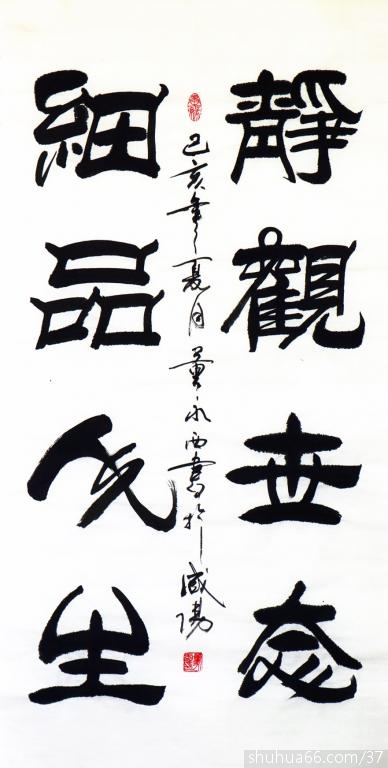 靜觀世态
細品人生
己亥年夏月董永西書於咸陽
shuhua66.com/37